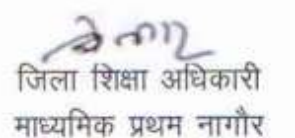 जिला शिक्षा अधिकारी
माध्यमिक प्रथम नागौर